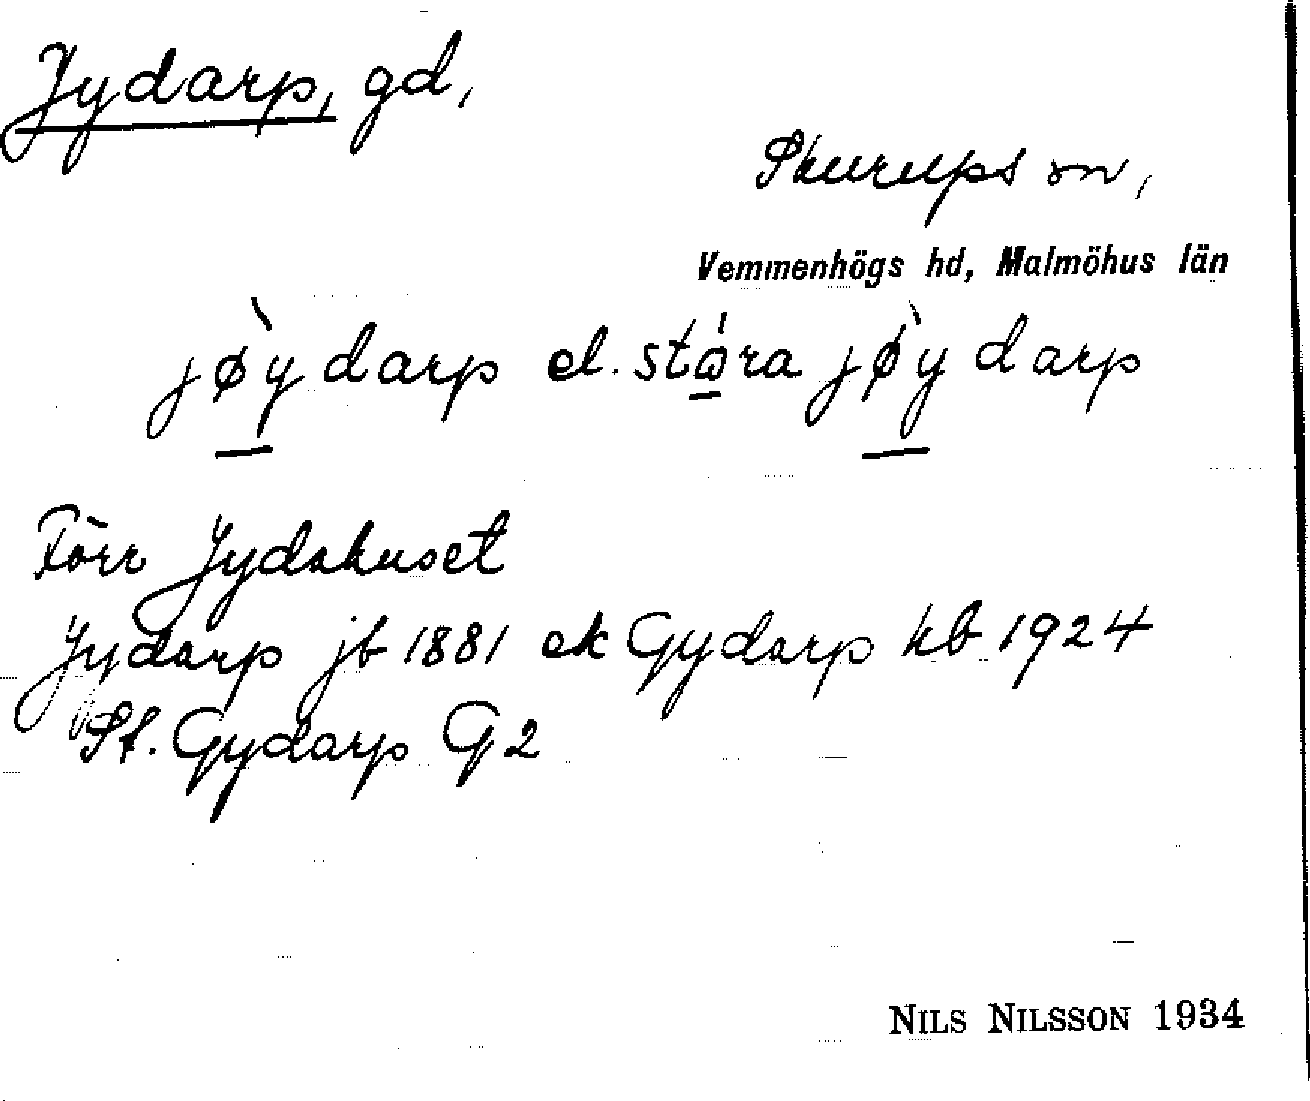 Jydarp, gd,
Skurups sn,
Vemmenhögs hd, Malmöhus län
jø̀y darp el. stɷ́ra jø̀y darp
Förr Jydahuset
Jydarp jb 1881 ek Gydarp kb 1924
St. Gydarp G2
NILS NILSSON 1934